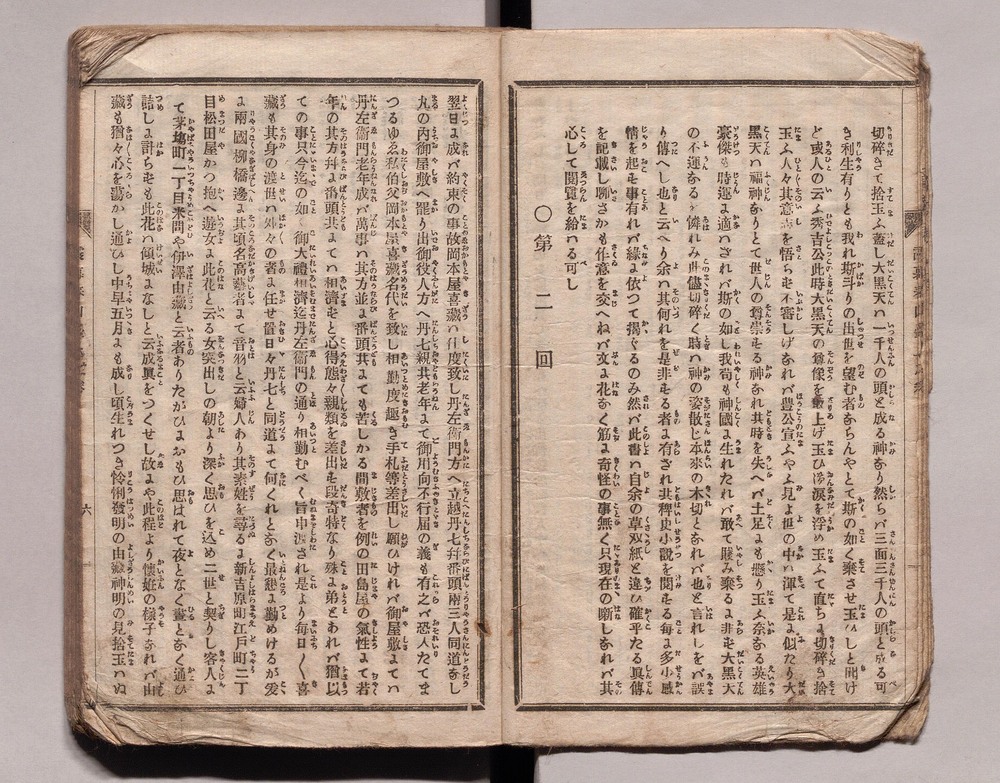 切碎きて捨玉ふ蓋し大黑天ハ一千人の頭と成る神なり然らバ三面三千人の頭とも成る可
き利生有りとも我れ斯斗りの出世を望む者ならんやとて斯の如く棄させ玉ひしと聞け
ど或人の云ふ秀吉公此時大黑天の尊像を上げ玉ひ御涙を浮め玉ふて直ちに切碎き捨
玉ふ人々其意を悟らず不審しげなれバ豊公宣ふやふ見よ世の中ハ渾て是に似たり大
黑天ハ福神なりとて世人の尊崇する神なれ共時を失へバ土足にも懸り玉ふ奈なる英雄
豪傑も時運に適ハされバ斯の如し我苟も神國に生れたれバ敢て賤み棄るに非ず大黑天
の不運なるを憐れみ此儘切碎く時ハ神の姿散じ本來の木切となれバ也と言れしを誤
り傳へし也と云へり余ハ其何れを是非する者に有ざれ共稗史小説を閲する毎に多少感
情を起す事有れバ緣に依つて揭ぐるのみ然バ此書ハ自余の草双紙と違ひ確乎たる眞傳
を記載し聊さかも作意を交へねバ文に花なく筋に奇怪の事無く只現在の噺しなれバ其
心して閲覽を給ハる可し
〇第二回
翌日に成バ約束の事故岡本屋喜藏ハ仕度致し丹左衞門方へ立越丹七幷番頭兩三人同道なし
丸の内御屋敷へ罷り出御役人方へ丹七親共老年にて御用向不行屆の義も有之バ恐入たてま
つるゆゑ私伯父岡本屋喜藏名代を致し相勤度趣き手札等差出し願ひけれバ御屋敷にてハ
丹左衞門老年成バ萬事ハ其方並に番頭共にても苦しかる間敷者を例の田島屋の氣性にて若
年の其方幷に番頭共にてハ相濟ずと心得態々親類を差出す段奇特なり殊に弟とあれバ猶以
ての事只今迄の如く御大禮相濟迄丹左衞門の通り相勤むべく旨申渡され是より毎日〱喜
藏も其身の渡世ハ外々の者に任せ置日々丹七と同道にて何くれとなく最懇に勤めけるが爰
に兩國柳橋邊に其頃名高藝者にて音羽と云婦人あり其素姓を尋るに新吉原町江戸町二丁
目松田屋かつ抱へ遊女に此花と云る女突出しの朝より深く思ひを込め二世と契りし客人に
て茅塲町一丁目米問や伊澤由藏と云者ありたがひにおもひ思ハれて夜となく晝となく通ひ
詰しに計らずも此花ハ傾城になしと云成興とをつくせし故にや此程より懷姙の樣子なれバ由
藏も猶々心を蕩かし通ひし中早五月にも成し頃生れつき怜悧發明の由藏神明の見捨玉ハぬ
六